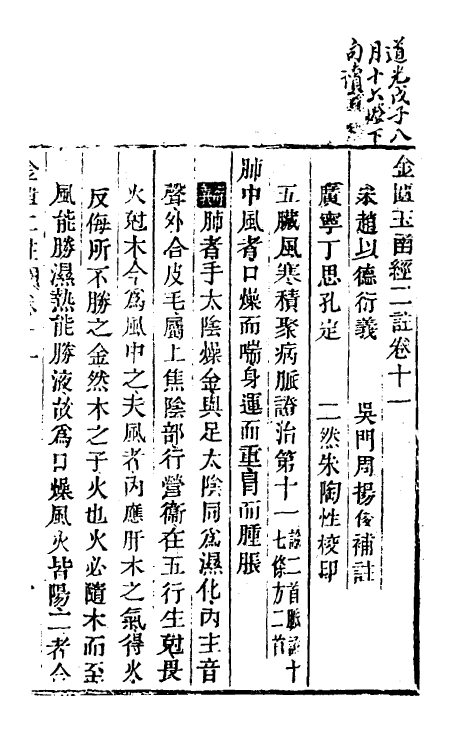 道光戊子八
月十六燈下
句讀
金匱玉函經二註卷十一
宋趙以德衍義 吳門周揚俊補註
廣寧丁思孔定 二然朱陶性校印
五臟風寒積聚病脈證治第十一 論二首脈證十七條方二首
肺中風者口燥而喘身運而重冒而腫脹
肺者手太陰燥金與足太陰同為濕化內主音
聲外合皮毛屬上焦陰部行營衛在五行生尅畏
火尅木今為風中之夫風者內應肝木之氣得火
反侮所不勝之金然木之子火也火必隨木而至
風能勝濕熱能勝液故為口燥風火皆陽二者合